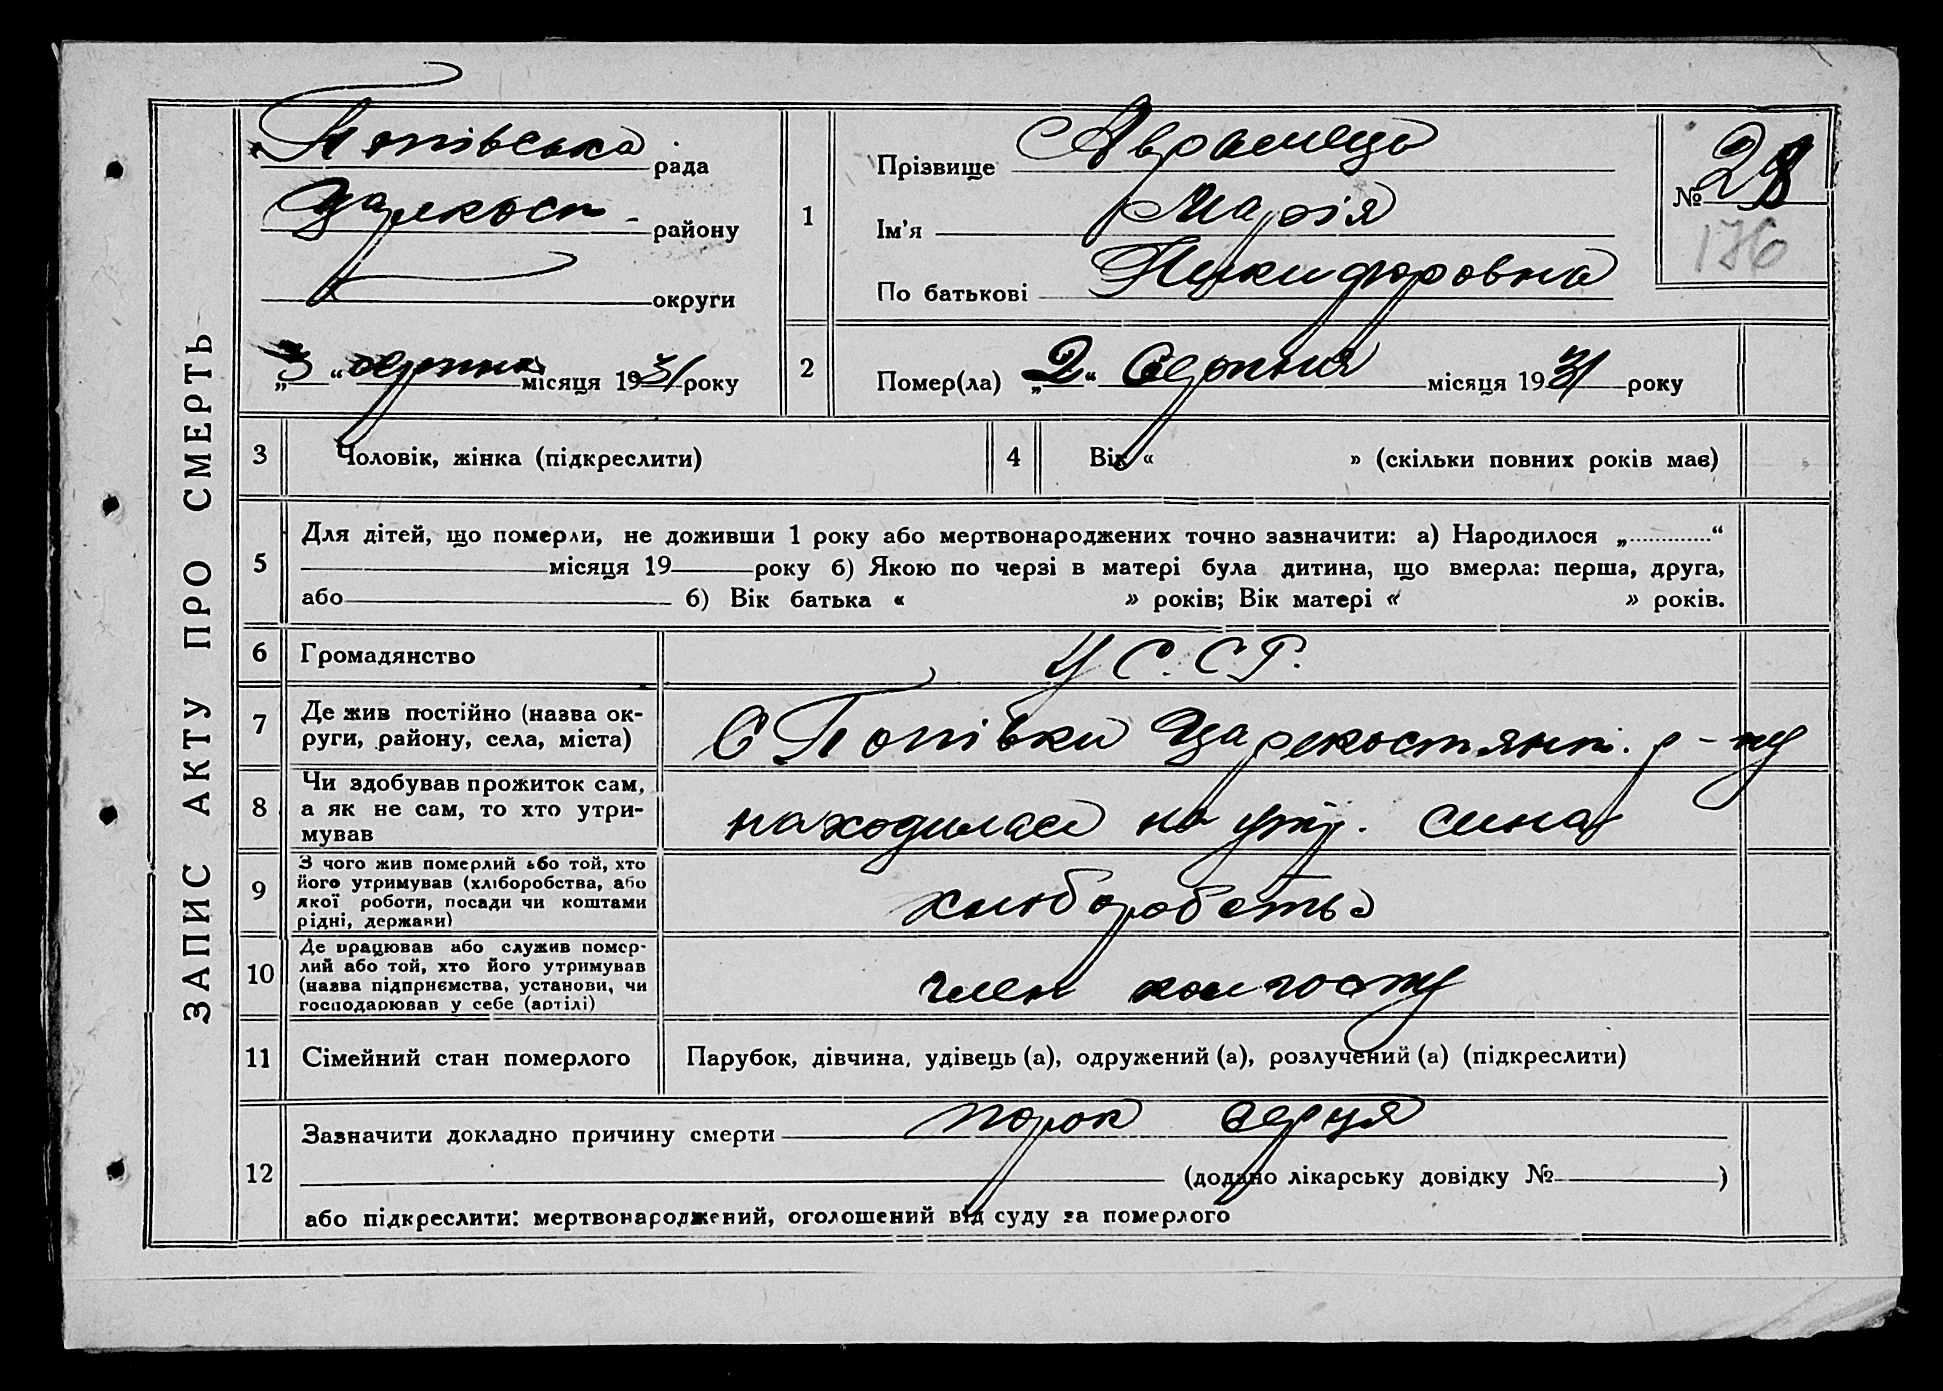 ЗАПИС АКТУ ПРО СМЕРТЬ
Попівська рада
Царекост. району
округи
„3“ серпня місяця 1931 року
1
Прізвище Аврамець
Ім'я Марія
По батькові Никифоровна
№ 28
176
2
Помер(ла) „2“ Серпня місяця 1931 року
3 Чоловік, жінка (підкреслити)
4 Вік « » (скільки повних років має)
5 Для дітей, що померли, не доживши 1 року або мертвонароджених точно зазначити: а) Народилося „ “
місяця 19 року б) Якою по черзі в матері була дитина, що вмерла: перша, друга,
або б) Вік батька « » років; Вік матері « » років.
6 Громадянство У С. С. Р.
7 Де жив постійно (назва ок-
руги, району, села, міста)
С Попівки Царекостянт. р-ну
8 Чи здобував прожиток сам,
а як не сам, то хто утри-
мував
находилась на утр. сина
9 З чого жив померлий або той, хто
його утримував (хліборобства, або
якої роботи, посади чи коштами
рідні, держави)
хліборобство
10 Де працював або служив помер-
лий або той, хто його утримував
(назва підприємства, установи, чи
господарював у себе (артілі)
член колгоспу
11 Сімейний стан померлого Парубок, дівчина, удівець (а), одружений (а), розлучений (а) (підкреслити)
12 Зазначити докладно причину смерти порок серця
(додано лікарську довідку № )
або підкреслити: мертвонароджений, оголошений від суду за померлого